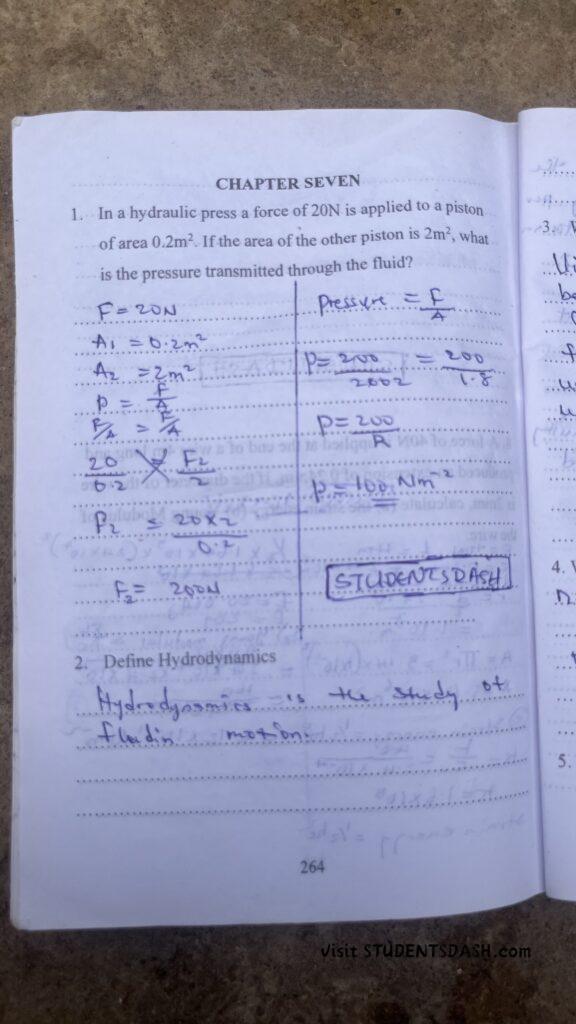 CHAPTER SEVEN
1. In a hydraulic press a force of 20N is applied to a piston
of area 0.2m². If the area of the other piston is 2m², what
is the pressure transmitted through the fluid?
F = 20N
A₁ = 0.2m²
A₂ = 2m²
P = F/A
F/A = F/A
20/0.2 = F₂/2
F₂ = 20×2/0.2
F₂ = 200N
Pressure = F/A
P = 200/2002 = 200/1.8
P = 200/R
P = 100 Nm⁻²
STUDENTSDASH
2. Define Hydrodynamics
Hydrodynamics is the study of
motion.
264
3.
4.
5.
Visit STUDENTSDASH.com